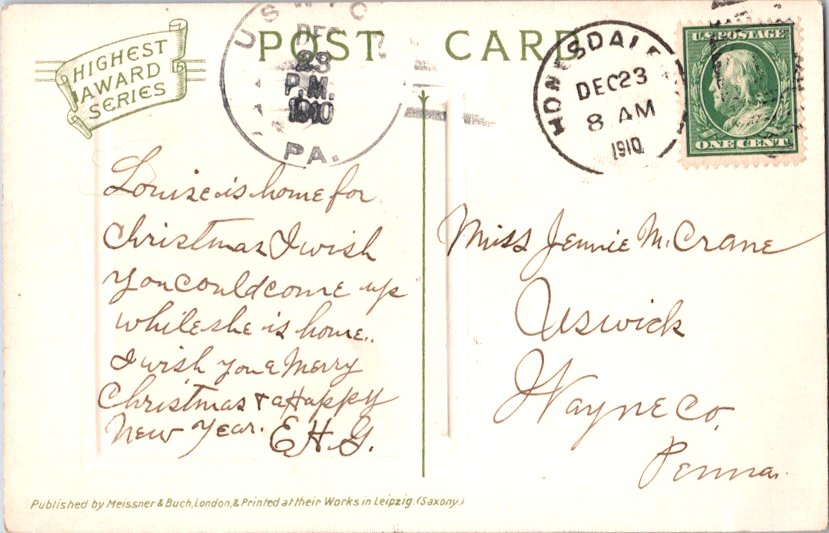 HIGHEST
AWARD
SERIES
POST CARD
DEC
23
P.M.
1910
PA.
HONESDALE
DEC 23
8 AM
1910
U.S. POSTAGE
ONE CENT
Louise is home for
Christmas I wish
you could come up
while she is home..
I wish you a Merry
Christmas & a Happy
New Year. E.H.G.
Miss Jennie M. Crane
Uswick
Wayne Co.
Penna.
Published by Meissner & Buch, London, & Printed at their Works in Leipzig. (Saxony.)